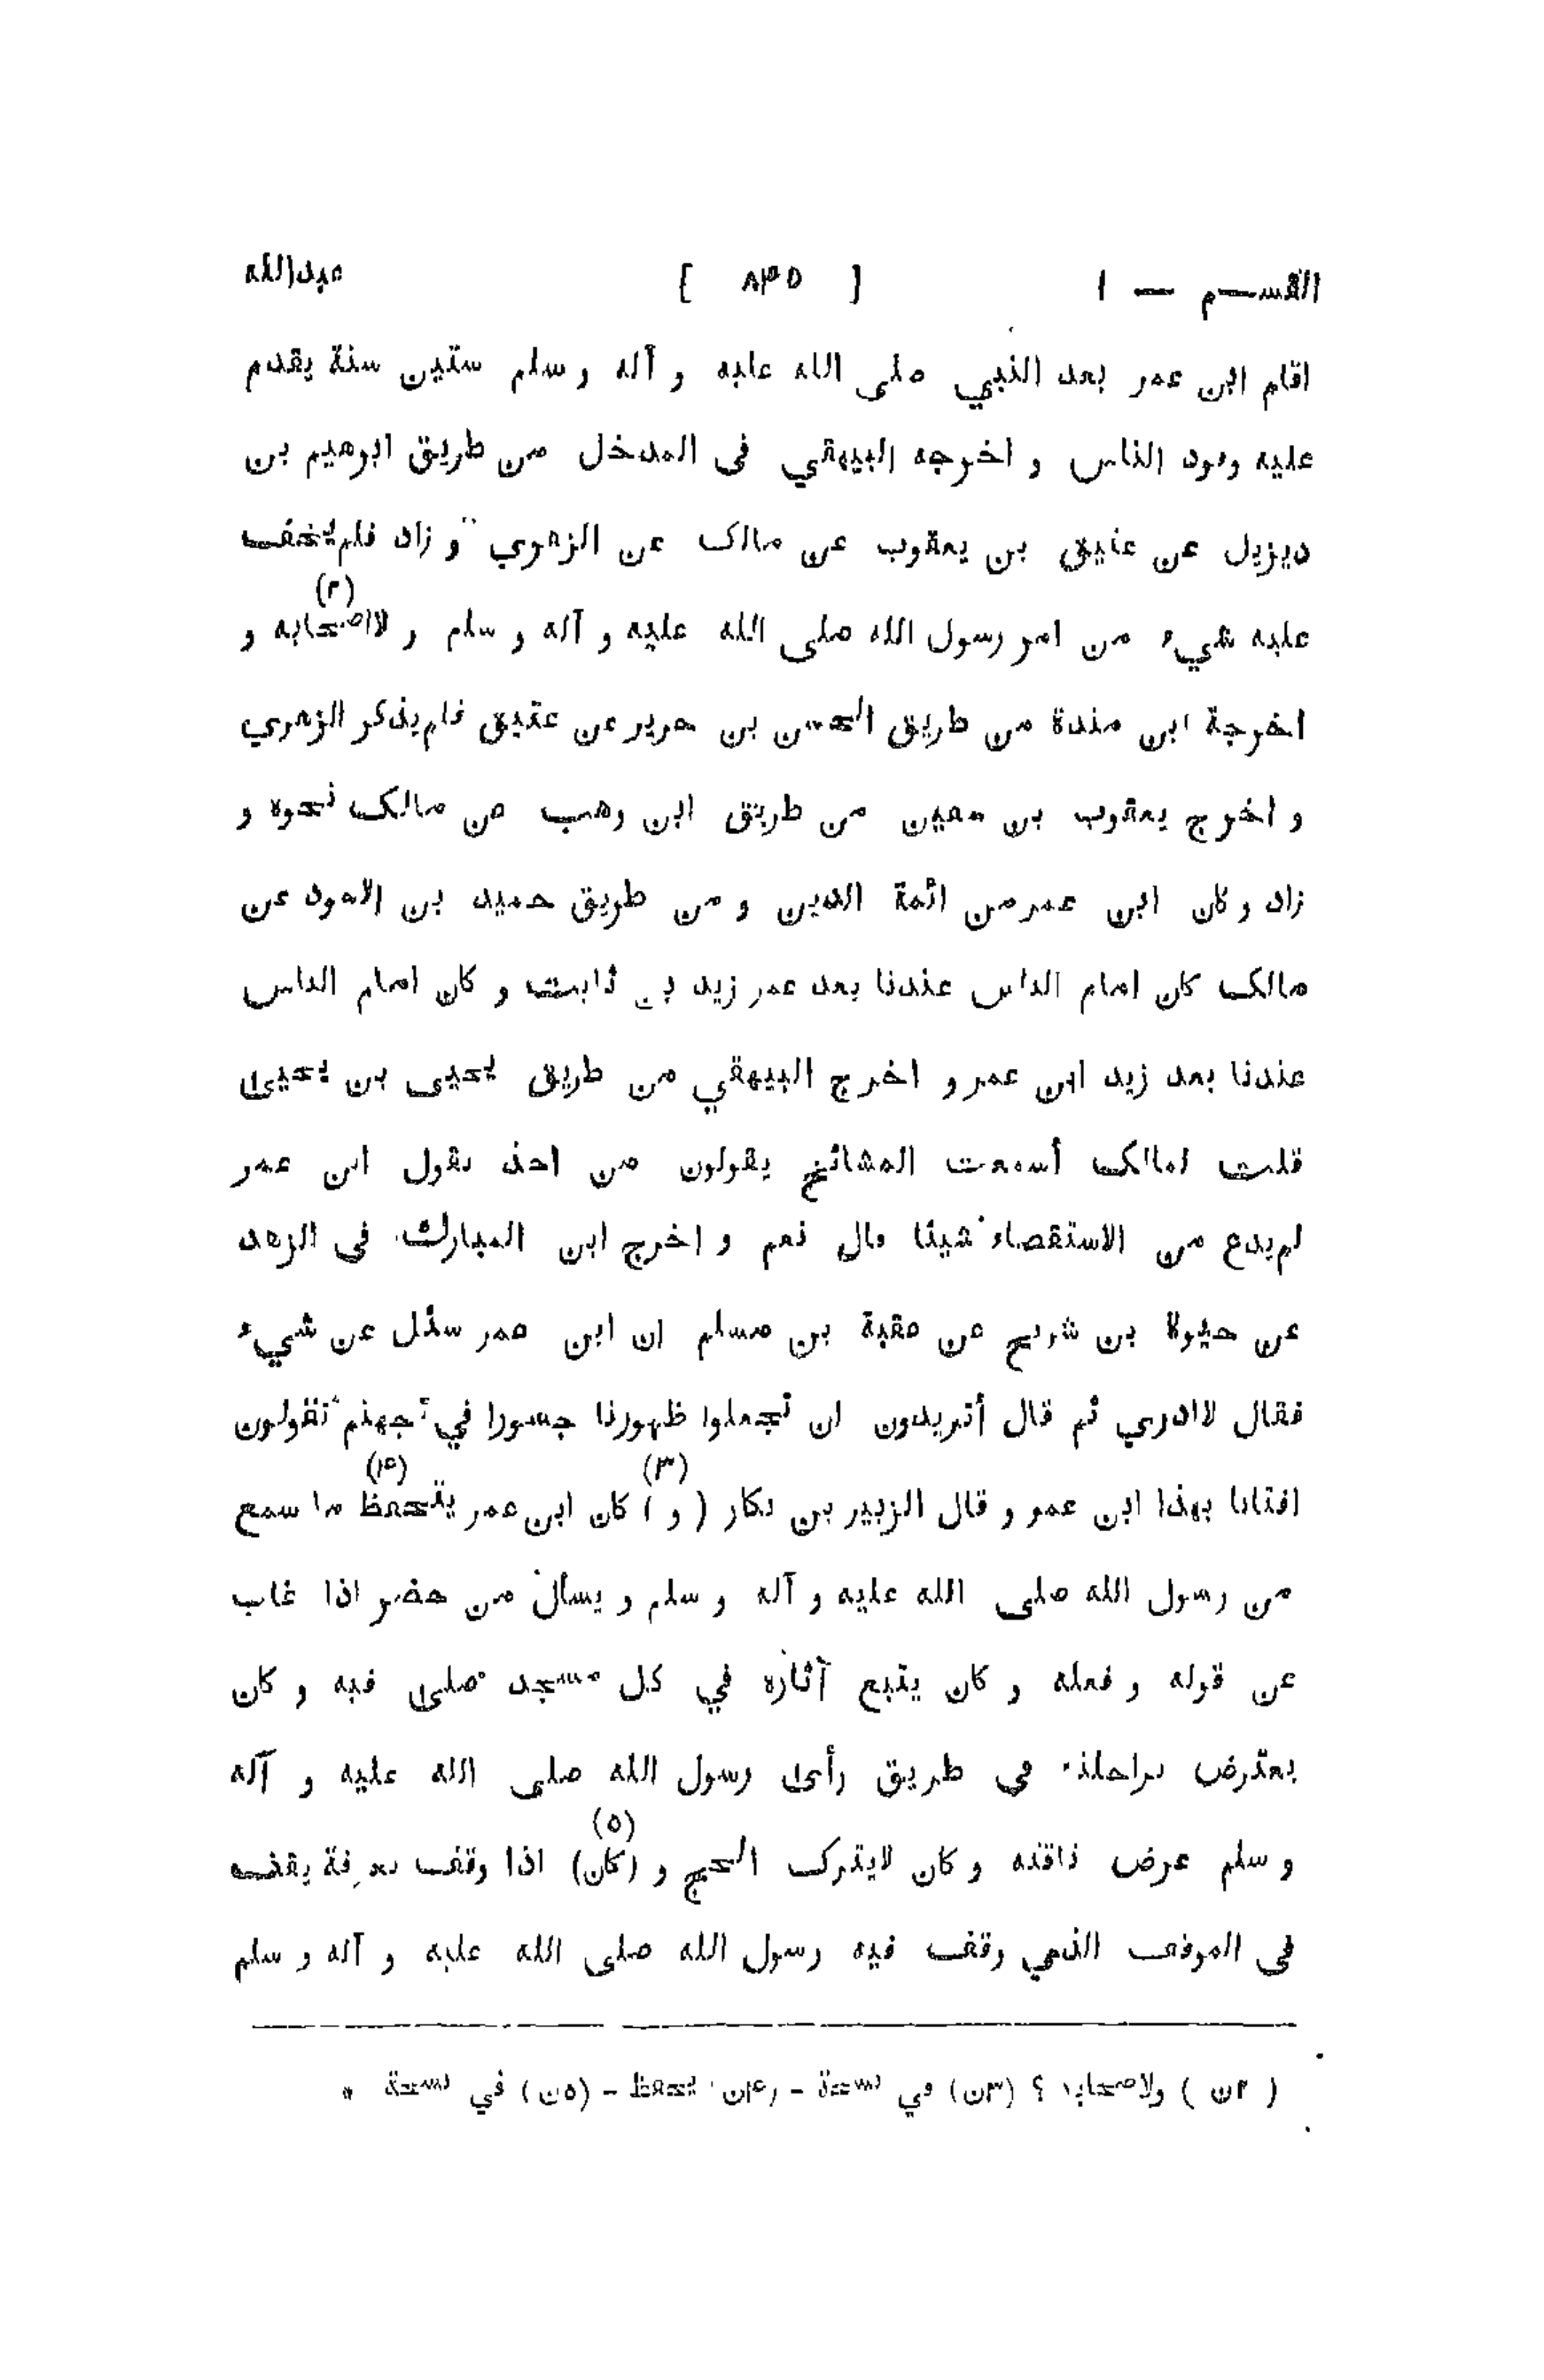 القسم — ١ [ ٨٣٥ ] عبدالله
اقام ابن عمر بعد النبي صلى الله عليه و آله و سلم ستين سنة يقدم
عليه وفود الناس و اخرجه البيهقي فى المدخل من طريق ابرهيم بن
ديزيل عن عتيق بن يعقوب عن مالك عن الزهري و زاد فلم يخف
عليه شيء من امر رسول الله صلى الله عليه و آله و سلم و لااصحابه (٢) و
اخرجة ابن مندة من طريق الحسن بن جرير عن عتيق فلم يذكر الزهري
و اخرج يعقوب بن معين من طريق ابن وهب عن مالك نحوه و
زاد و كان ابن عمر من ائمة الدين و من طريق حميد بن الاسود عن
مالك كان امام الناس عندنا بعد عمر زيد بن ثابت و كان امام الناس
عندنا بعد زيد ابن عمر و اخرج البيهقي من طريق يحيى بن يحيى
قلت لمالك أسمعت المشائخ يقولون من اخذ بقول ابن عمر
لم يدع من الاستقصاء شيئا قال نعم و اخرج ابن المبارك فى الزهد
عن حيوة بن شريح عن عقبة بن مسلم ان ابن عمر سئل عن شيء
فقال لاادري ثم قال أتريدون ان تجعلوا ظهورنا جسورا في جهنم تقولون
افتانا بهذا ابن عمر و قال الزبير بن بكار ( و ) (٣) كان ابن عمر يتحفظ (٤) ما سمع
من رسول الله صلى الله عليه و آله و سلم و يسأل من حضر اذا غاب
عن قوله و فعله و كان يتبع آثاره في كل مسجد صلى فيه و كان
يعترض براحلته في طريق رأى رسول الله صلى الله عليه و آله
و سلم عرض ناقته و كان لايترك الحج و (كان) (٥) اذا وقف بعرفة يقف
فى الموقف الذي وقف فيه رسول الله صلى الله عليه و آله و سلم
( ٢ن ) ولاصحابه ؟ (٣ن) في نسخة – (٤ن) يحفظ – (٥ن) في نسخة *